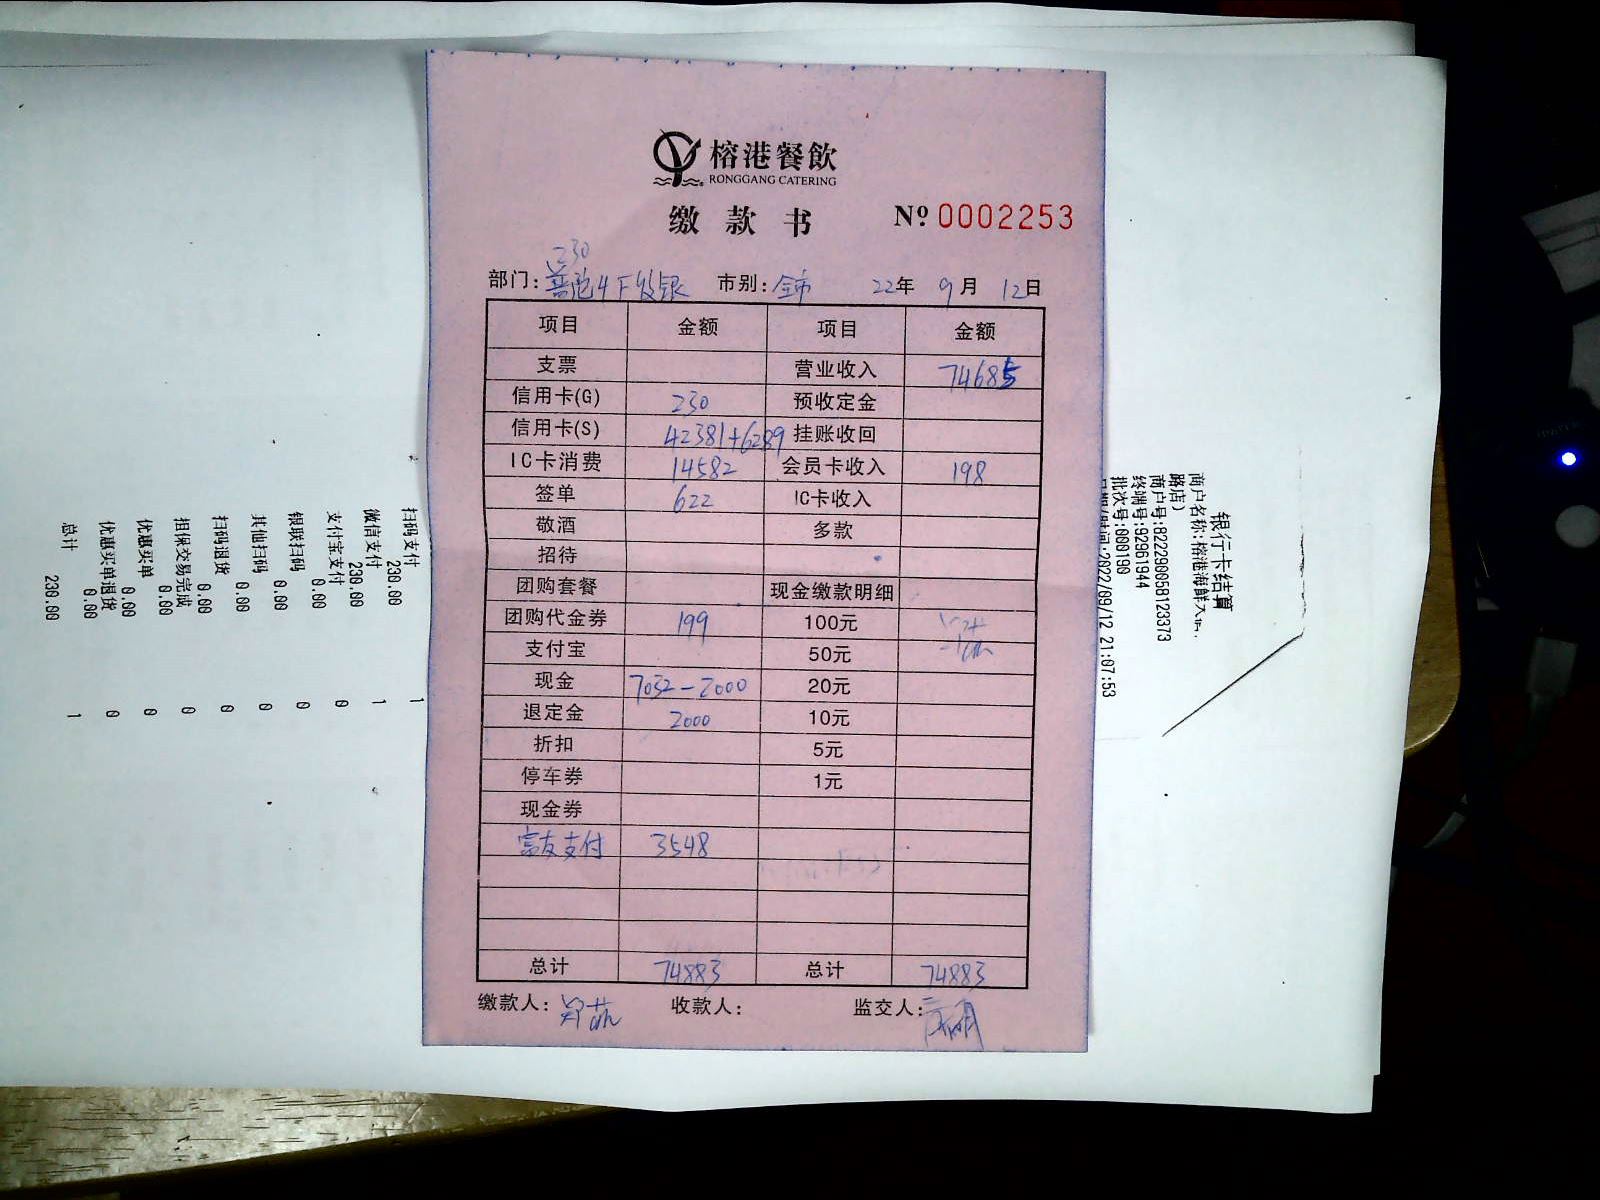 榕港餐飲
RONGGANG CATERING
缴款书 Nº 0002253
230
部门: 4F收银 市别: 全市 22年 9月 12日
项目 金额 项目 金额
支票 营业收入 74685
信用卡(G) 230 预收定金
信用卡(S) 42381+6289 挂账收回
IC卡消费 14582 会员卡收入 198
签单 622 IC卡收入
敬酒 多款
招待
团购套餐 现金缴款明细
团购代金券 199 100元
支付宝 50元
现金 7032-2000 20元
退定金 2000 10元
折扣 5元
停车券 1元
现金券
富友支付 3548
总计 74883 总计 74883
缴款人: 收款人: 监交人:
银行卡结算
商户名称:榕港海鲜大
路店)
商户号:822290058123373
终端号:92961944
批次号:000190
2022/09/12 21:07:53
扫码支付 230.00 1
微信支付 230.00 1
支付宝支付 0.00 0
银联扫码 0.00 0
其他扫码 0.00 0
扫码退货 0.00 0
担保交易完成 0.00 0
优惠买单 0.00 0
优惠买单退货 0.00 0
总计 230.00 1